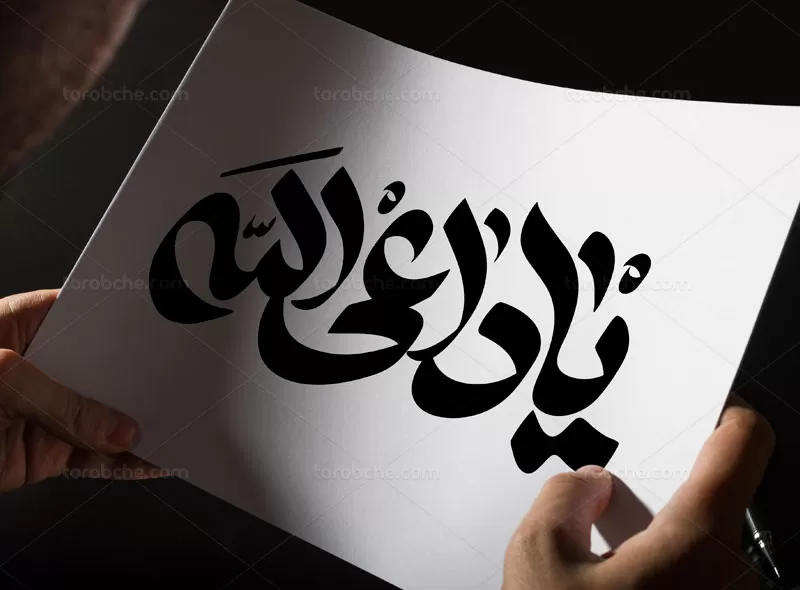 torobche.com torobche.com torobche.com
یا داعی الله
torobche.com torobche.com torobche.com
torobche.com torobche.com torobche.com